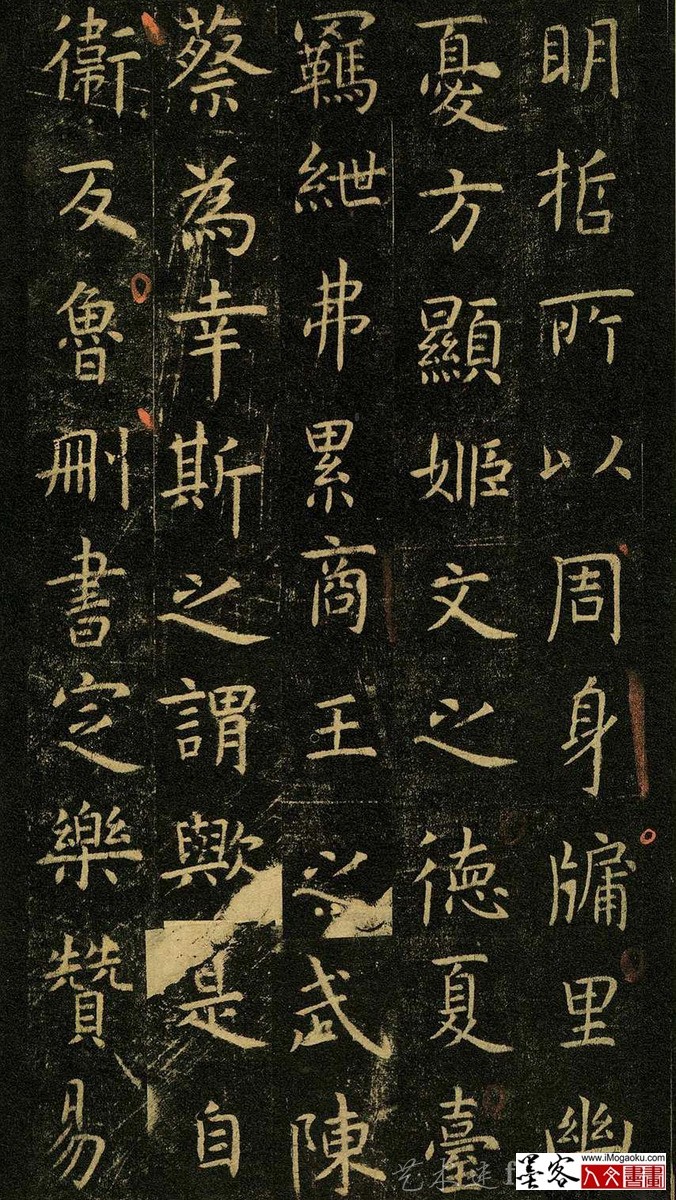 明哲所以周身牖里幽
憂方顯姬文之德夏臺
羈紲弗累商王之武陳
蔡為幸斯之謂歟是自
衛反魯刪書定樂贊易
www.iMogaoku.com
墨客
人文書畫